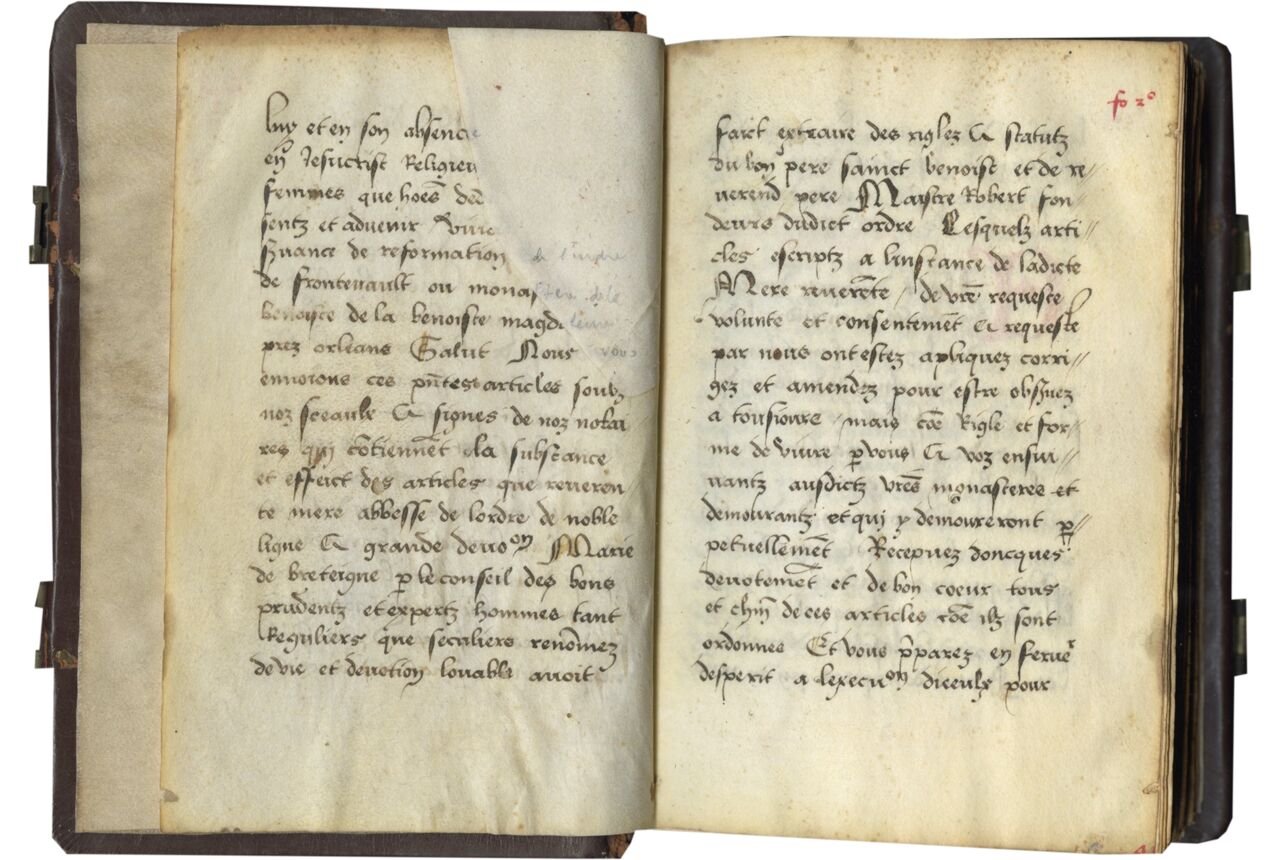 luy et en son absence
en Jesucrist Religieu
femmes que hoẽs de
sentz et advenir vivre
s̃vance de reformation de l'ordre
de frontevault ou monastere de la
benoiste de la benoiste magdeleine
prez orleans Salut Nous vous
envoions ces pñtes articles soubz
noz sceaulx & signes de noz notai
res qui cõtiennẽt la substance
et effeict des articles que reveren
te mere abbesse de lordre de noble
ligne & grande devoon Marie
de breteigne p le conseil des bons
prudentz et expertz hommes tant
Reguliers que seculiers renõmez
de vie et devotion louable avoit
fo 2o
faict extraire des riglez & statutz
du bon pere sainct benoist et de re//
verend pere Maistre Robert fon
deurs dudict ordre Lesquelz arti//
cles escriptz a linstance de ladicte
Mere reverẽte / de vrẽ requeste
volunte et consentemẽt & requeste
par nous ont estez apliquez corri//
gez et amendez pour estre obs̃vez
a tousiours mais cõe Rigle et for//
me de vivre p vous & voz ensui//
vantz ausdictz vrẽs monasteres et
demourantz et qui y demoureront p//
petuellemẽt Recepvez doncques
devotemẽt et de bon coeur tous
et chũn de ces articles cõe ilz sont
ordonnes Et vous p̃parez en ferver
desperit a lexecuon diceulx pour